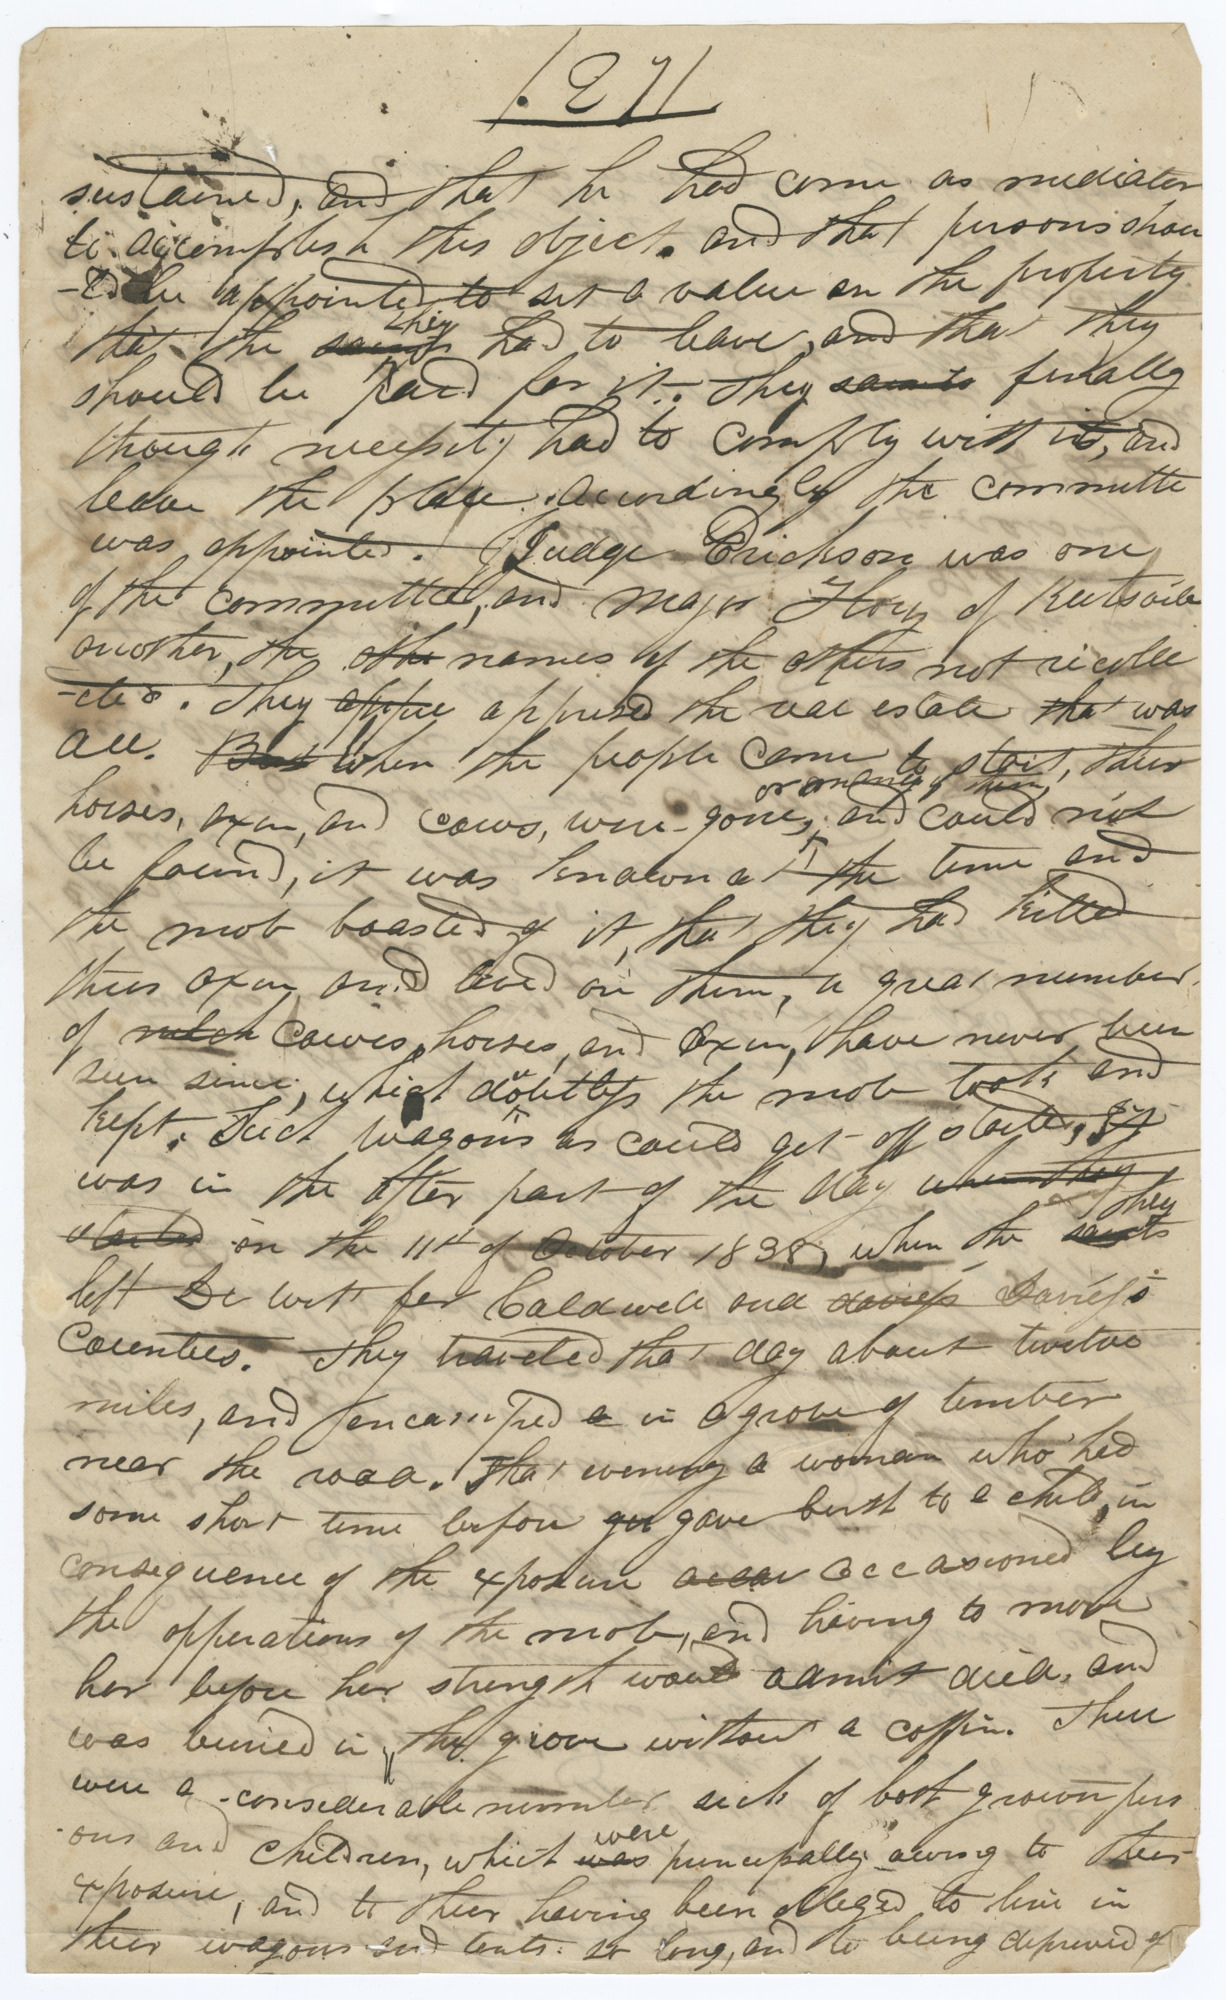 [27]
sustained, and that he had come as mediator
to accomplish this object. and that persons shou
-ld be appointed to set a value on the property
that the saints they had to leave, and that they
should be paid for it. They saints finally
though necessity had to comply with it, and
leave the place. Accordingly the committe
was appointed. Judge Erickson was one
of the committee, and major Florey of Keetsville
another, the the names of the others not recolle
-cted. They appre apprised the real estate that was
all. But When the people came to start, their
horses, oxen, and cows, were gone, or many of them, and could not
be found, it was known at the time and
the mob boasted of it, that they had killed
their oxen and lived on them, a great number
of milch cowes, horses, and oxen, have never been
seen since, which doubtless the mob took and
kept. Such wagons as could get off started, It
was in the after part of the day when they
started on the 11th of October 1838, when the saints they
left De Witt for Caldwell and daviess Daviess
Counties. They traveled that day about twelve
miles, and encamped a in a grove of timber
near the road. That evening a woman who had
some short time before ga gave birth to a child, in
consequence of the exposure occas occasioned by
the opperations of the mob, and having to move
her before her strength would admit died, and
was buried in the grove without a coffin. There
were a considerable number sick of both grown pers
ons and children, which was were principally owing to their
exposure, and to their having been obleged to live in
their wagons and tents so long, and to being deprived of